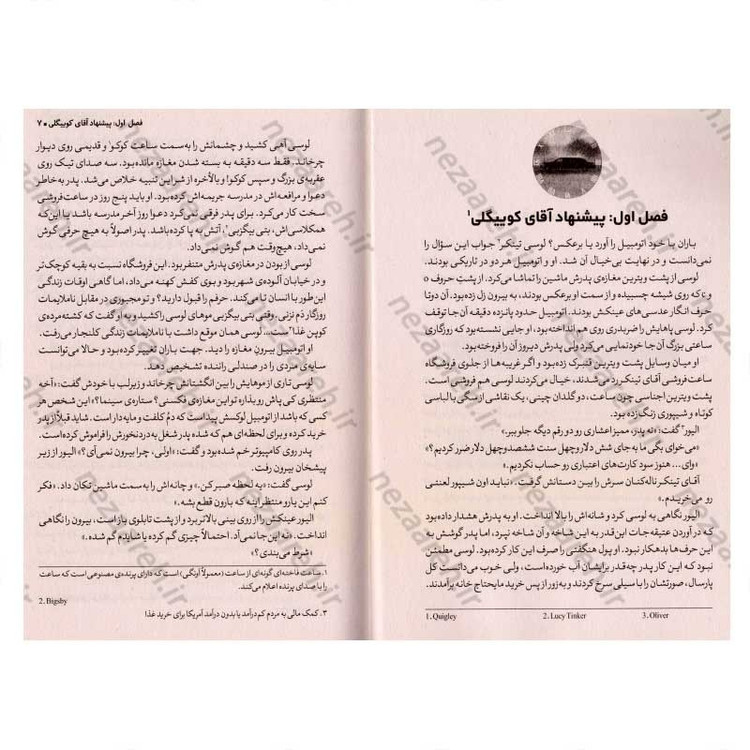 فصل اول: پیشنهاد آقای کوییگلی۱
باران با خود اتومبیل را آورد یا برعکس؟ لوسی تینکر۲ جواب این سؤال را
نمی‌دانست و در نهایت بی‌خیال آن شد. او و اتومبیل هر دو در تاریکی بودند.
لوسی از پشت ویترین مغازه‌ی پدرش ماشین را تماشا می‌کرد. از پشتِ حروف o
و c که روی شیشه چسبیده و از سمت او برعکس بودند، به بیرون زل زده بود. آن دو تا
حرف انگار عدسی‌های عینکش بودند. اتومبیل حدود پانزده دقیقه آن‌جا توقف
کرد. لوسی پاهایش را ضربدری روی هم انداخته بود. او جایی نشسته بود که روزگاری
ساعتی بزرگ آن‌جا خودنمایی می‌کرد ولی پدرش دیروز آن را فروخته بود.
او میان وسایل پشت ویترین تمرگ زده بود و اگر غریبه‌ها از جلوی فروشگاه
ساعت‌فروشی آقای تینکر رد می‌شدند، خیال می‌کردند لوسی هم فروشی است.
پشت ویترین اجناسی چون ساعت، دو گلدان چینی، یک نقاشی از سگی با لباسی
کوتاه و شیپوری زنگ‌زده بود.
الیور۳ گفت: «نه پدر، ممیز اعشاری رو دو رقم دیگه جلو ببر.»
«می‌خوای بگی ما به جای شش دلار و چهل سنت ششصد و چهل دلار ضرر کردیم؟»
«وای... هنوز سود کارت‌های اعتباری رو حساب نکردیم.»
آقای تینکر ناله‌کنان سرش را بین دستانش گرفت. «نباید اون شیپور لعنتی
رو می‌خریدم.»
الیور نگاهی به لوسی کرد و شانه‌اش را بالا انداخت. او به پدرش هشدار داده بود
که در آوردن عتیقه‌جات این‌قدر به این شاخه و آن شاخه نپرد، اما پدر گوشش به
این حرف‌ها بدهکار نبود. او پول هنگفتی را صرف این کار کرده بود. لوسی مطمئن
نبود که این کار پدر چه‌قدر برایشان آب خورده است، ولی خوب می‌دانست کل
پارسال، صورتشان را با سیلی سرخ کردند و به زور از پس خرید مایحتاج خانه برآمدند.
1. Quigley
2. Lucy Tinker
3. Oliver
فصل اول: پیشنهاد آقای کوییگلی ■ ۷
لوسی آهی کشید و چشمانش را به سمت ساعت کوکو۱ و قدیمی روی دیوار
چرخاند. فقط سه دقیقه به بسته شدن مغازه مانده بود. سه صدای تیک روی
عقربه‌ی بزرگ و سپس کوکو! و بالأخره از شر این تنبیه خلاص می‌شد. پدر به خاطر
دعوا و مرافعه‌اش در مدرسه جریمه‌اش کرده بود. او باید پنج روز در ساعت‌فروشی
سخت کار می‌کرد. برای پدر فرقی نمی‌کرد دعوا روز آخر مدرسه باشد یا این‌که
همکلاسی‌اش، بتی بیگزبی۲، آتش به پا کرده باشد. پدر اصولاً به هیچ حرفی گوش
نمی‌داد، هیچ‌وقت هم گوش نمی‌داد.
لوسی از بودن در مغازه‌ی پدرش متنفر بود. این فروشگاه نسبت به بقیه کوچک‌تر
و در خیابان آلوده‌ی شهر بود و بوی کفش کهنه می‌داد، اما گاهی اوقات زندگی
این‌طور با انسان تا می‌کند. حرفم را قبول دارید؟ و تو مجبوری در مقابل ناملایمات
روزگار دَم نزنی. وقتی بتی بیگزبی موهای لوسی را کشید و به او گفت که کشته‌مرده‌ی
کوپن غذا۳ست... لوسی همان موقع داشت با ناملایمات زندگی کلنجار می‌رفت.
او اتومبیل بیرون مغازه را دید. جهت باران تغییر کرده بود و حالا می‌توانست
سایه‌ی مردی را در صندلی راننده تشخیص دهد.
لوسی تاری از موهایش را بین انگشتانش چرخاند و زیر لب با خودش گفت: «آخه
منتظری کی پاش رو بذاره تو این مغازه‌ی فکسنی؟ ستاره‌ی سینما؟» این شخص هر
کسی که باشد از اتومبیل لوکسش پیداست که دُم کلفت و مایه‌دار است. شاید قبلاً از پدر
خرید کرده و برای لحظه‌ای هم که شده پدر شغل به درد نخورش را فراموش کرده است.
پدر روی کامپیوتر خم شده بود و گفت: «اولی، چرا بیرون نمی‌آی؟» الیور از زیر
پیشخان بیرون رفت.
لوسی گفت: «یه لحظه صبر کن.» و چانه‌اش را به سمت ماشین تکان داد. «فکر
کنم این یارو منتظر اینه که بارون قطع بشه.»
الیور عینکش را از روی بینی بالاتر برد و از پشت تابلوی باز است، بیرون را نگاهی
انداخت. «نه این جا نمی‌آد. احتمالاً چیزی گم کرده یا شایدم گم شده.»
«شرط می‌بندی؟»
۱. ساعت فاخته‌ای گونه‌ای از ساعت (معمولاً آونگی) است که دارای پرنده‌ی مصنوعی است که ساعت
را با صدای پرنده اعلام می‌کند.
2. Bigsby
۳. کمک مالی به مردم کم‌درآمد یا بدون درآمد آمریکا برای خرید غذا
nezaareh.ir